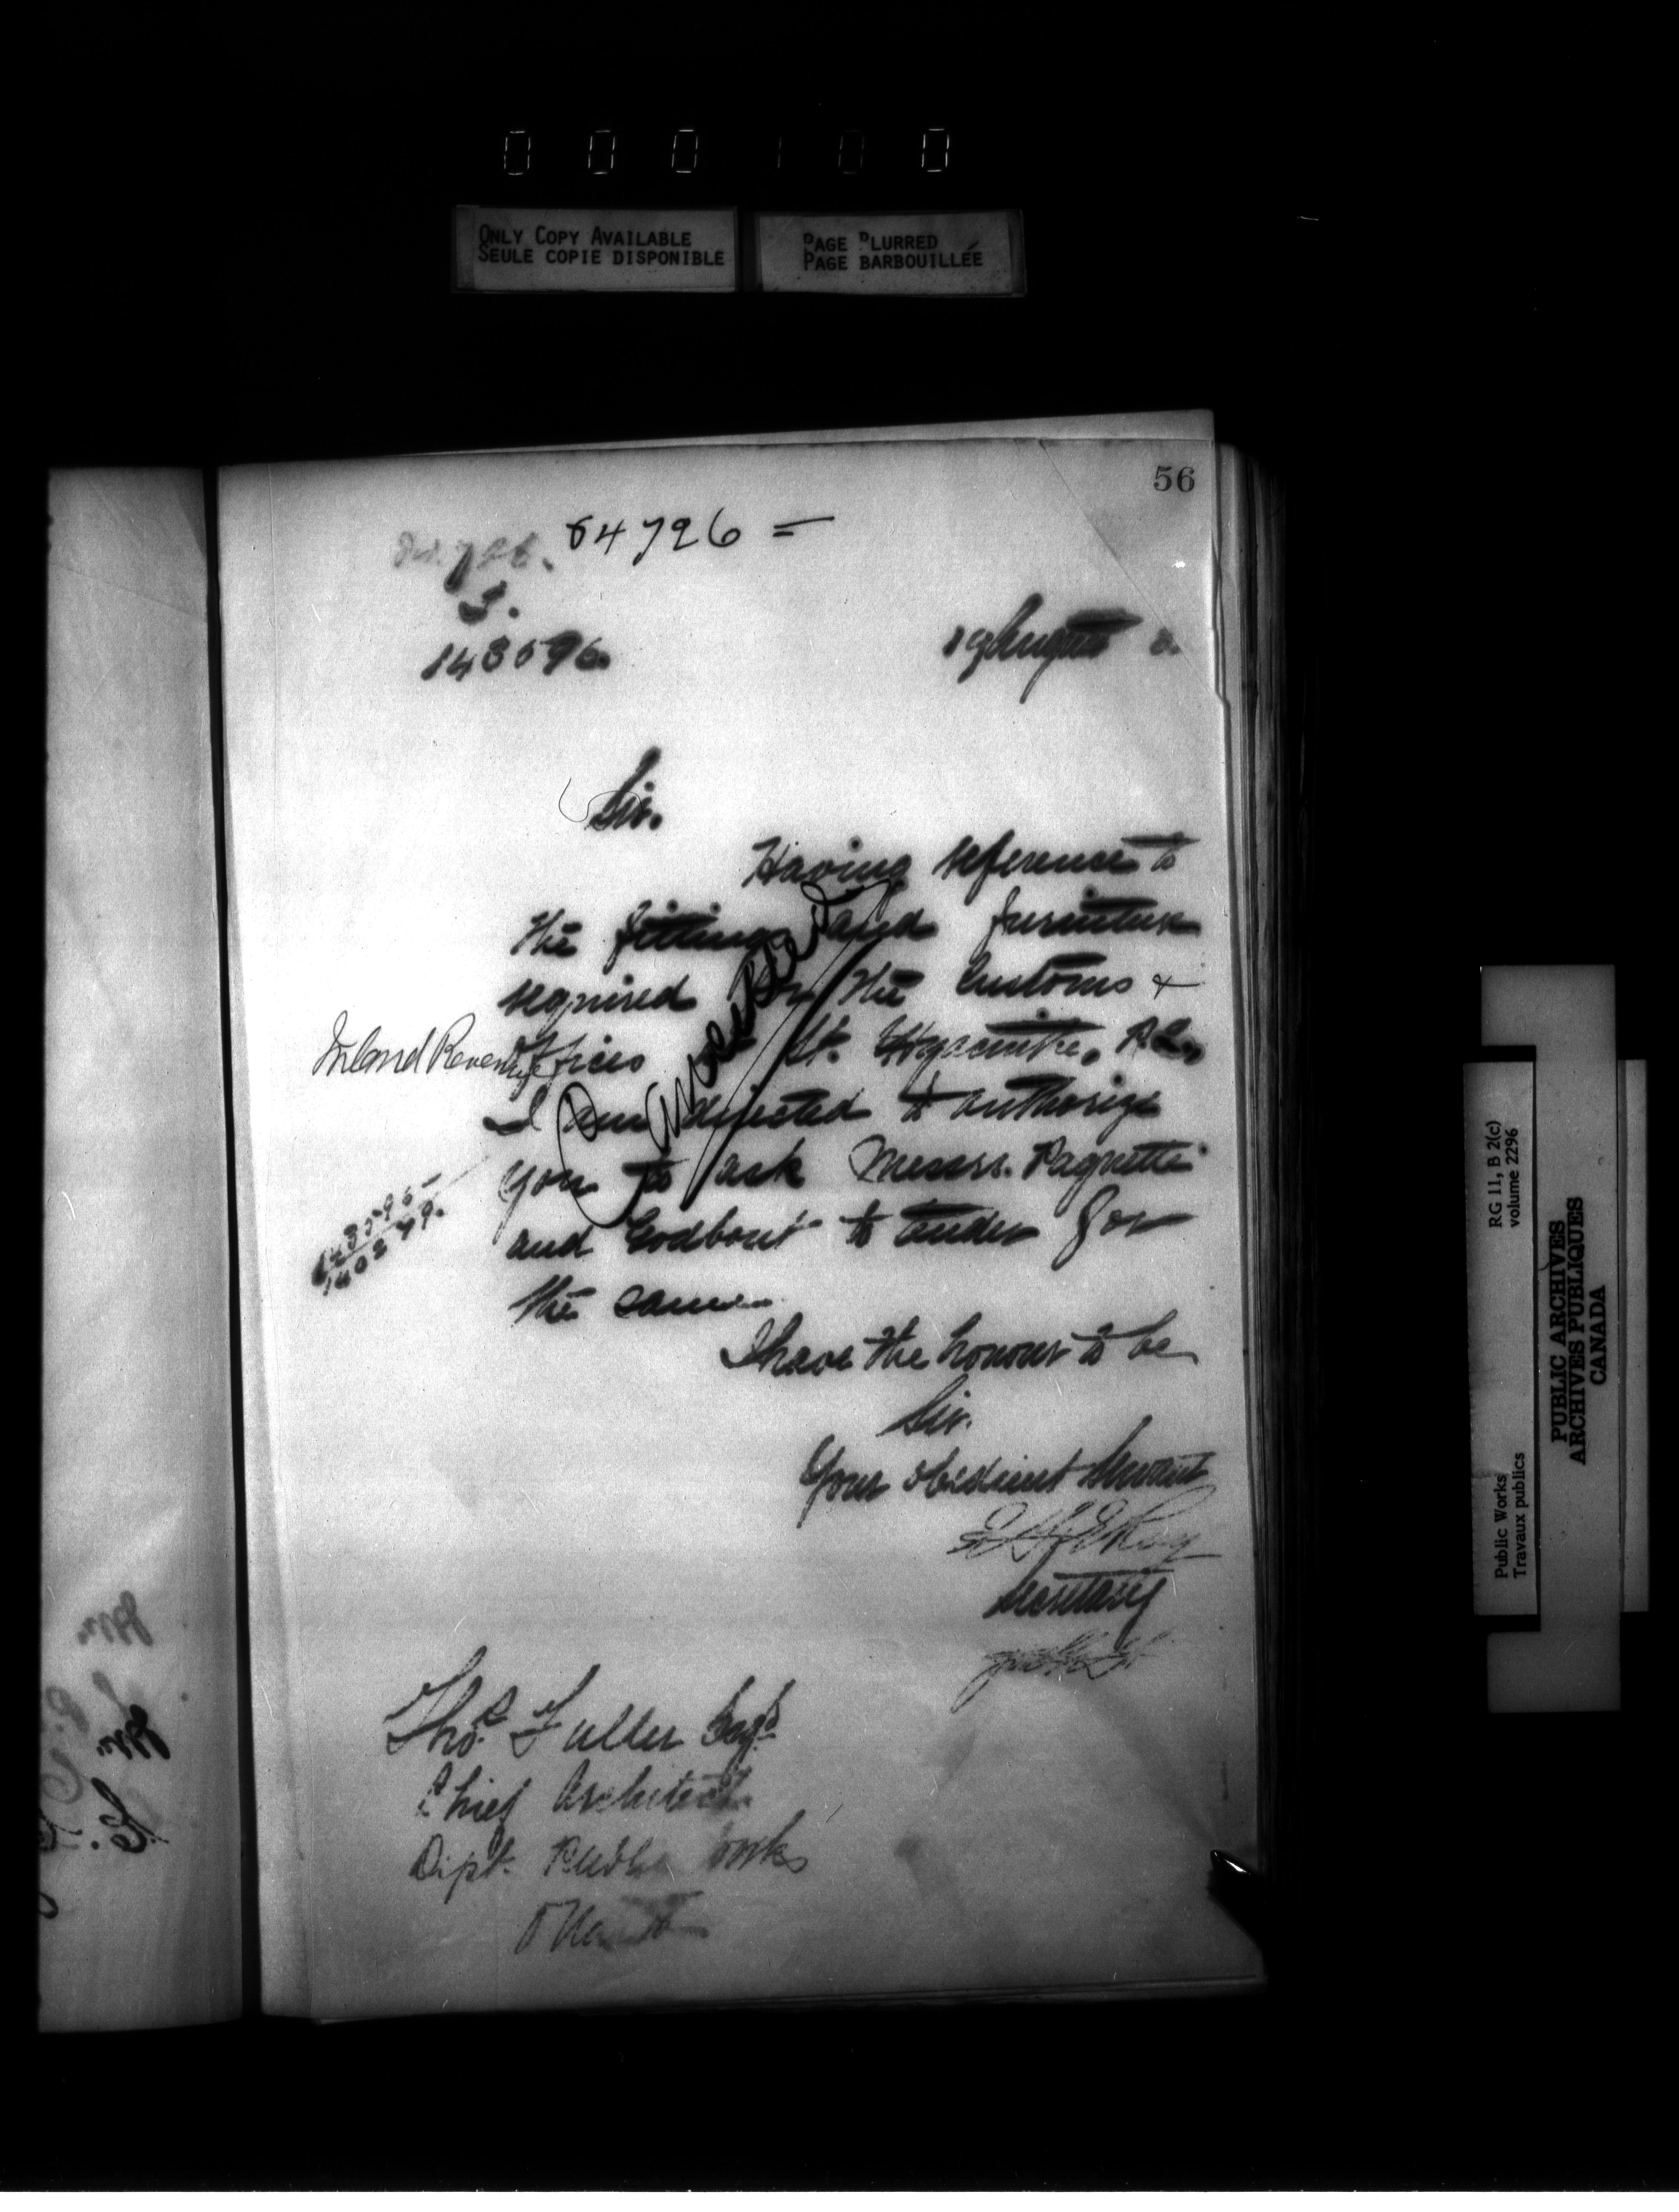 000100
ONLY COPY AVAILABLE
SEULE COPIE DISPONIBLE
PAGE BLURRED
PAGE BARBOUILLÉE
56
84796 =
143596.
19 August
Sir.
Having reference to
the fittings and furniture
required for the Customs &
Inland Revenue Offices St. Hyacinthe, P.Q.,
I am directed to authorize
you to ask Messrs. Paquette
and Godbout to tender for
the same.
Cancelled
143596
140299.
I have the honour to be
Sir.
Your obedient Servant
Secretary
Thos. Fuller Esqr.
Chief Architect
Dept. Public Works
Ottawa
RG 11, B 2(c)
volume 2296
Public Works
Travaux publics
PUBLIC ARCHIVES
ARCHIVES PUBLIQUES
CANADA